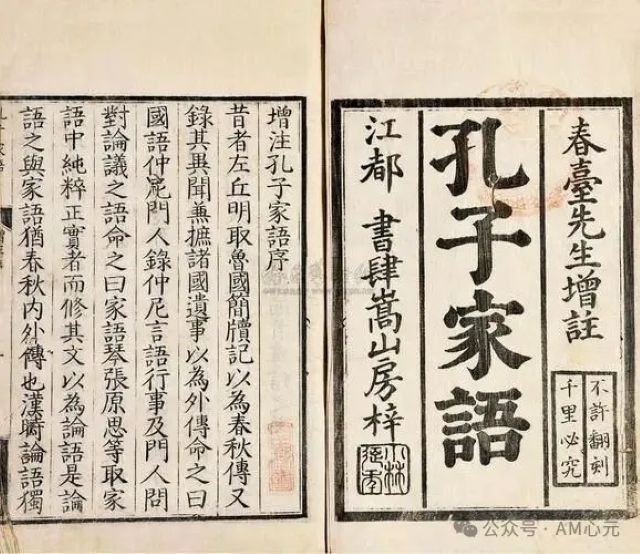 春臺先生增註
不許翻刻
千里必究
孔子家語
江都 書肆嵩山房梓
增注孔子家語序
昔者左丘明取魯國簡牘記以為春秋傳又
錄其異聞兼摭諸國遺事以為外傳命之曰
國語仲尼門人錄仲尼言語行事及門人問
對論議之語命之曰家語琴張原思等取家
語中純粹正實者而修其文以為論語是論
語之與家語猶春秋內外傳也漢時論語獨
公众号·AM心元